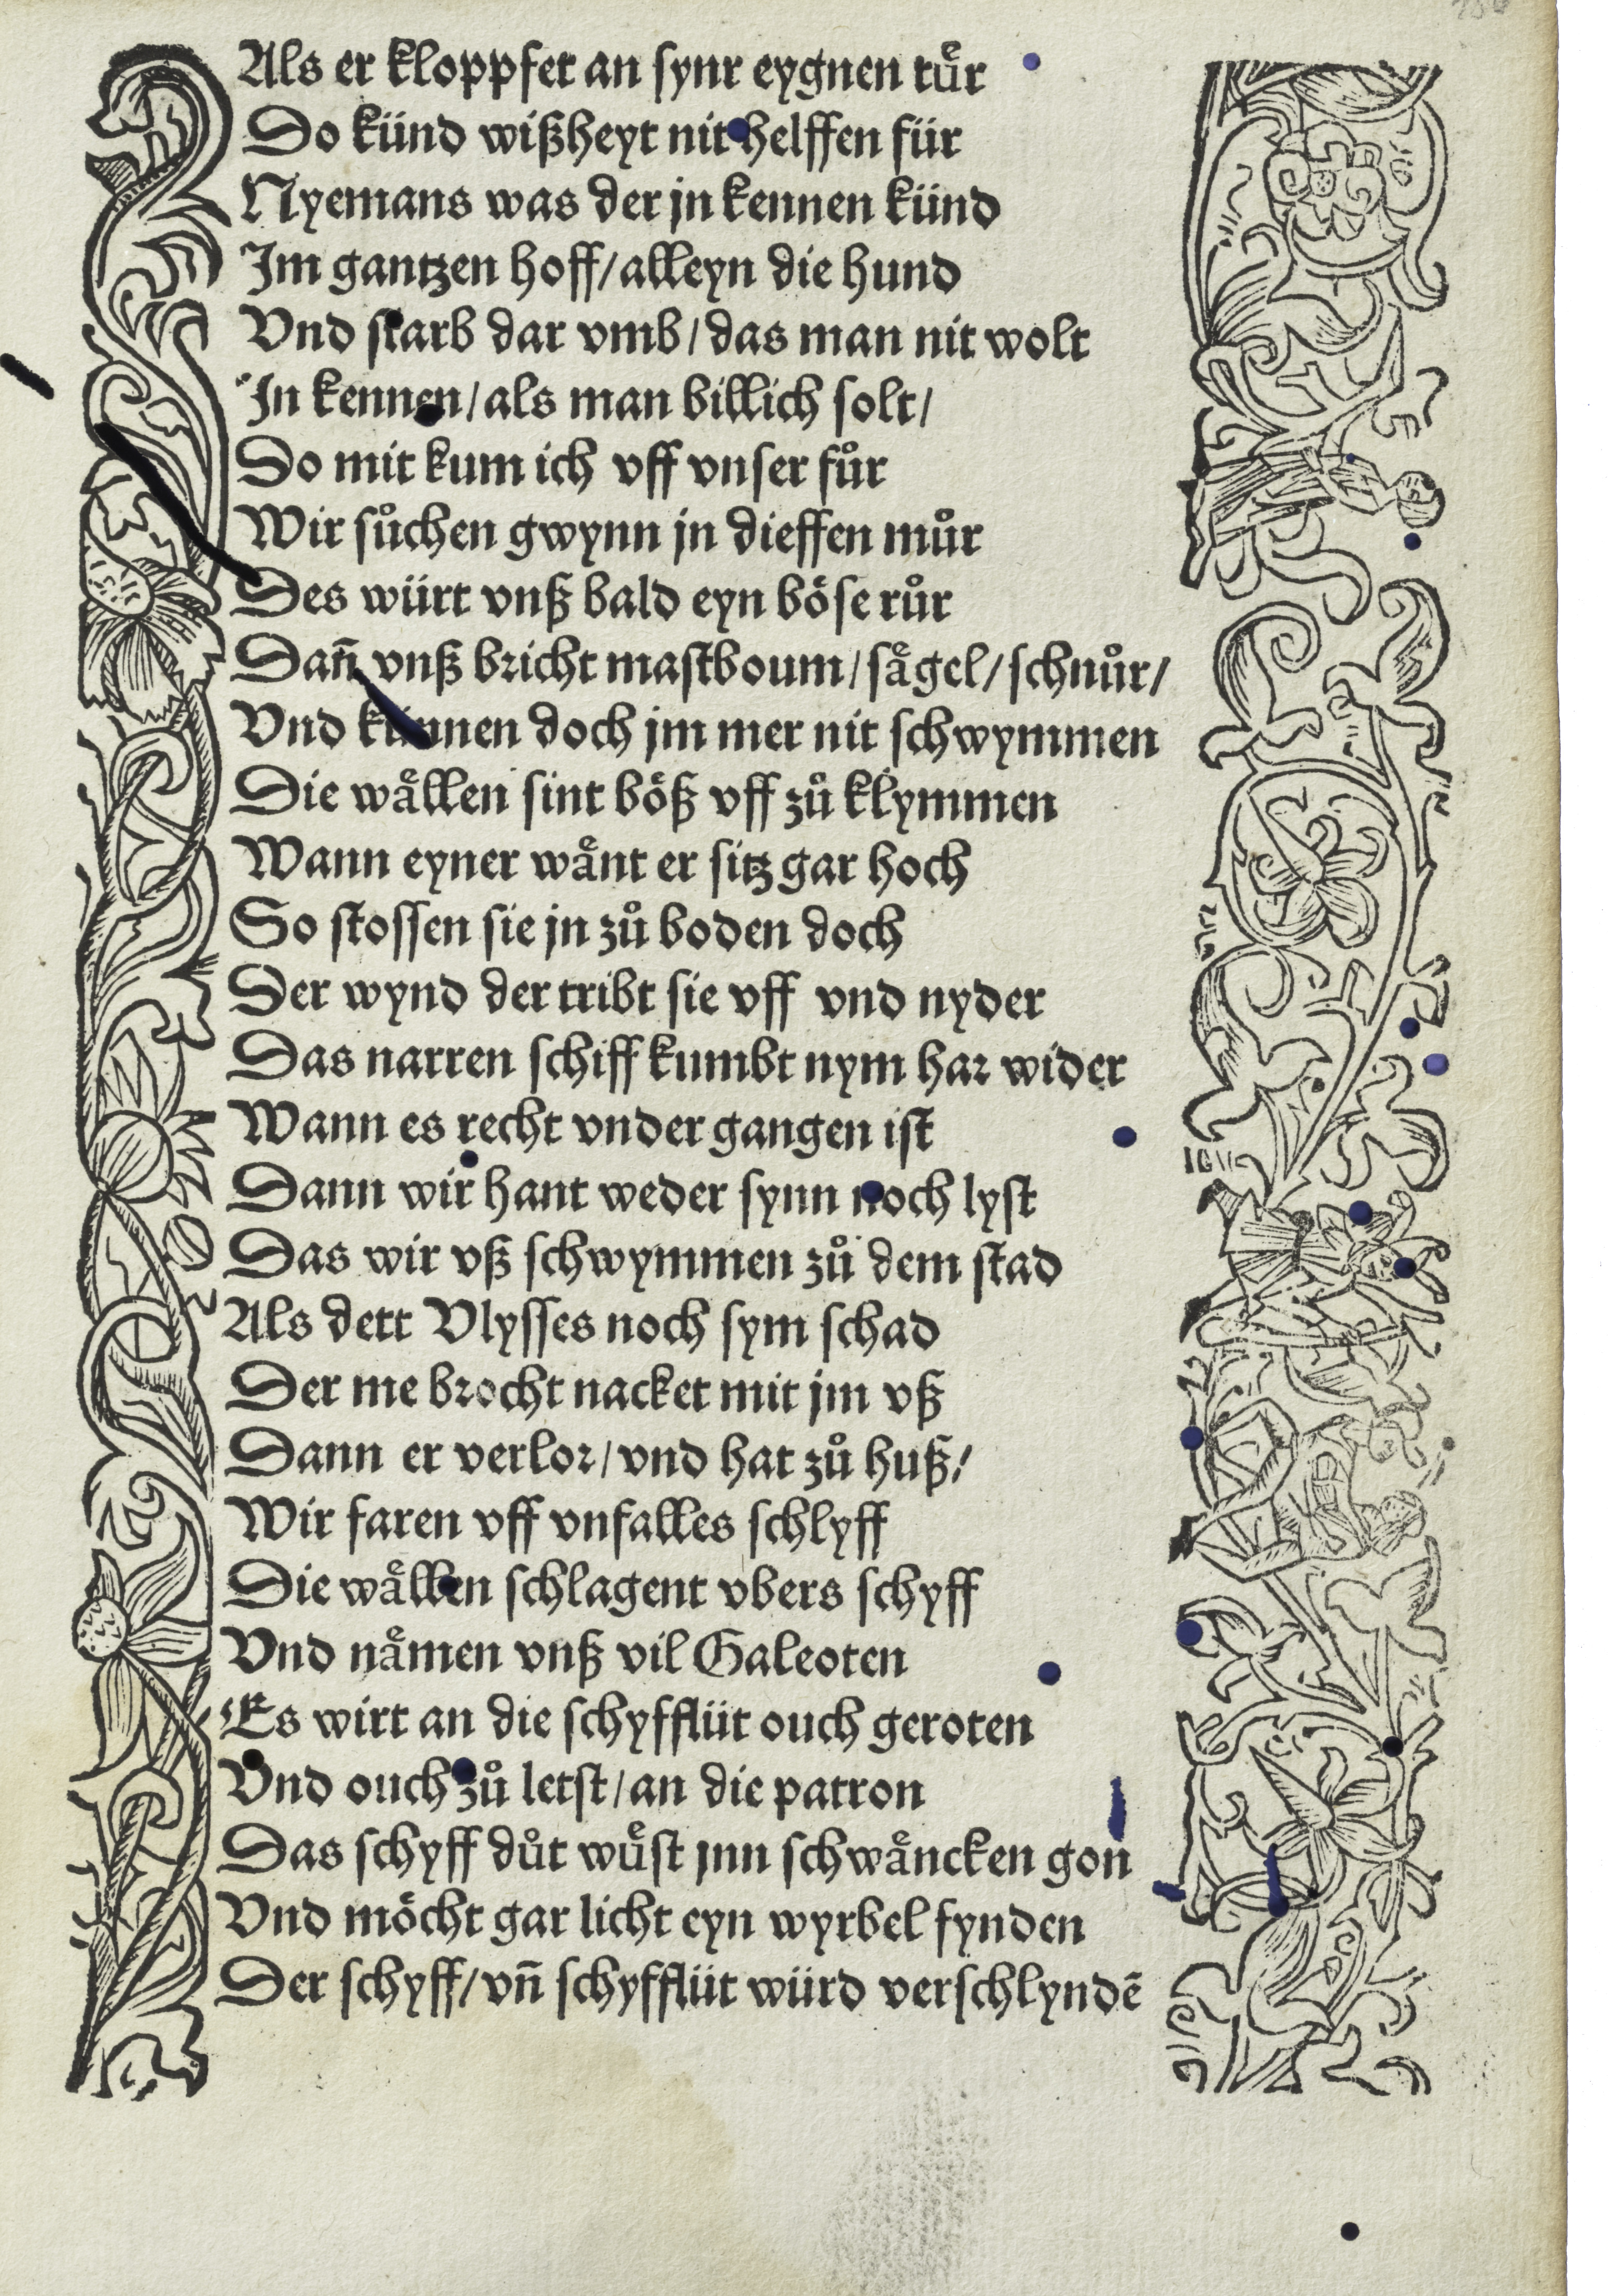 Als er kloppfet an synr eygnen tuͤr
Do künd wißheyt nit helffen für
Nyemans was der jn kennen künd
Im gantzen hoff/alleyn die hund
Vnd starb dar vmb/das man nit wolt
In kennen/als man billich solt/
Do mit kum ich vff vnser fuͦr
Wir suͦchen gwynn jn dieffen muͦr
Des würt vnß bald eyn böse ruͦr
Dañ vnß bricht mastboum/saͤgel/schnuͦr/
Vnd künnen doch jm mer nit schwymmen
Die waͤllen sint böß vff zuͦ klymmen
Wann eyner waͤnt er sitz gar hoch
So stossen sie jn zuͦ boden doch
Der wynd der tribt sie vff vnd nyder
Das narren schiff kumbt nym har wider
Wann es recht vnder gangen ist
Dann wir hant weder synn noch lyst
Das wir vß schwymmen zuͦ dem stad
Als dett Vlysses noch sym schad
Der me brocht nacket mit jm vß
Dann er verlor/vnd hat zuͦ huß/
Wir faren vff vnfalles schlyff
Die waͤllen schlagent vbers schyff
Vnd naͤmen vnß vil Galeoten
Es wirt an die schyfflüt ouch geroten
Vnd ouch zuͦ letst/an die patron
Das schyff duͦt wuͤst jnn schwaͤncken gon
Vnd möcht gar licht eyn wyrbel fynden
Der schyff/vñ schyfflüt würd verschlyndē